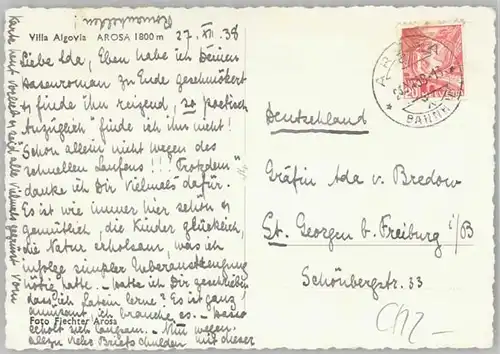 Romanhelden)
Villa Algovia AROSA 1800 m 27. XII. 38
Liebe Ida, Eben habe ich Deinen
Hasenroman zu Ende geschmökert
u finde ihn reizend, so poetisch
"Anzüglich" finde ich ihn nicht!
Schon allein nicht wegen des
schnellen Laufens!!! Trotzdem
danke ich Dir Vielmals dafür.
Es ist wie immer hier schön u
gemütlich, die Kinder glücklich,
die Natur erholsam, was ich
infolge simpler Ueberanstrengung
nötig hatte. - hatte ich Dir geschrieben
dass ich Latein lerne? Es ist ganz
amüsant, ich brauche es.
erholt sich langsam. Nun wegen
allzu vieler Briefschulden mit dieser
Foto Fiechter Arosa
Karte seid alle Vielmals gegrüsst von
AROSA
BAHNH
Deutschland
Gräfin Ada v. Bredow
St. Georgen b. Freiburg i/B
Schönbergstr. 33